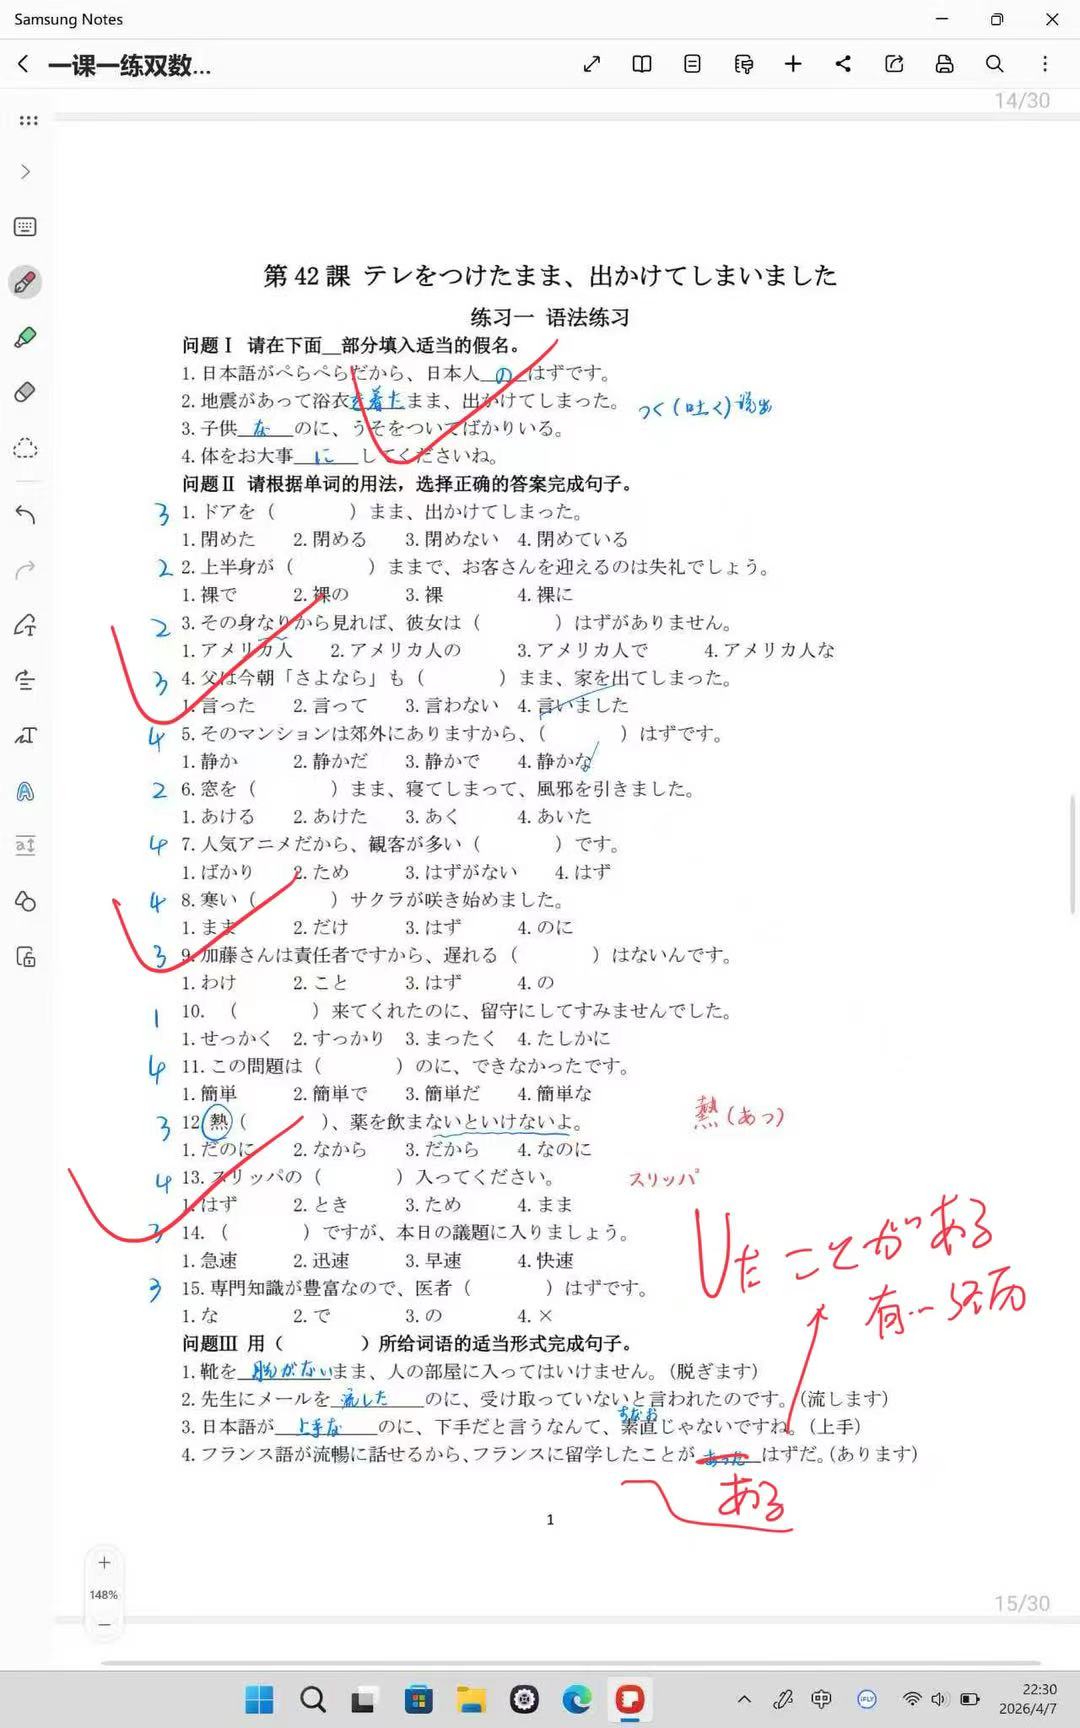 Samsung Notes
一课一练双数...
14/30
第 42 課 テレをつけたまま、出かけてしまいました
练习一 语法练习
问题Ⅰ 请在下面__部分填入适当的假名。
1. 日本語がぺらぺらだから、日本人 の はずです。
2. 地震があって浴衣を着たまま、出かけてしまった。 つく(吐く)说出
3. 子供 な のに、うそをついてばかりいる。
4. 体をお大事 に してくださいね。
问题Ⅱ 请根据单词的用法，选择正确的答案完成句子。
3 1. ドアを（ ）まま、出かけてしまった。
1. 閉めた 2. 閉める 3. 閉めない 4. 閉めている
2 2. 上半身が（ ）ままで、お客さんを迎えるのは失礼でしょう。
1. 裸で 2. 裸の 3. 裸 4. 裸に
2 3. その身なりから見れば、彼女は（ ）はずがありません。
1. アメリカ人 2. アメリカ人の 3. アメリカ人で 4. アメリカ人な
3 4. 父は今朝「さよなら」も（ ）まま、家を出てしまった。
1. 言った 2. 言って 3. 言わない 4. 言いました
4 5. そのマンションは郊外にありますから、（ ）はずです。
1. 静か 2. 静かだ 3. 静かで 4. 静かな
2 6. 窓を（ ）まま、寝てしまって、風邪を引きました。
1. あける 2. あけた 3. あく 4. あいた
4 7. 人気アニメだから、観客が多い（ ）です。
1. ばかり 2. ため 3. はずがない 4. はず
4 8. 寒い（ ）サクラが咲き始めました。
1. まま 2. だけ 3. はず 4. のに
3 9. 加藤さんは責任者ですから、遅れる（ ）はないんです。
1. わけ 2. こと 3. はず 4. の
1 10. （ ）来てくれたのに、留守にしてすみませんでした。
1. せっかく 2. すっかり 3. まったく 4. たしかに
4 11. この問題は（ ）のに、できなかったです。
1. 簡単 2. 簡単で 3. 簡単だ 4. 簡単な
3 12 熱（ ）、薬を飲まないといけないよ。 熱(あつ)
1. だのに 2. なから 3. だから 4. なのに
4 13. スリッパの（ ）入ってください。 スリッパ
1. はず 2. とき 3. ため 4. まま
3 14. （ ）ですが、本日の議題に入りましょう。
1. 急速 2. 迅速 3. 早速 4. 快速
Vた ことがある
有…经历
3 15. 専門知識が豊富なので、医者（ ）はずです。
1. な 2. で 3. の 4. ×
问题Ⅲ 用（ ）所给词语的适当形式完成句子。
1. 靴を 脱がない まま、人の部屋に入ってはいけません。（脱ぎます）
2. 先生にメールを 流した のに、受け取っていないと言われたのです。（流します）
すなお
3. 日本語が 上手な のに、下手だと言うなんて、素直じゃないですね。（上手）
4. フランス語が流暢に話せるから、フランスに留学したことが あった はずだ。（あります）
ある
1
148%
15/30
22:30
2026/4/7